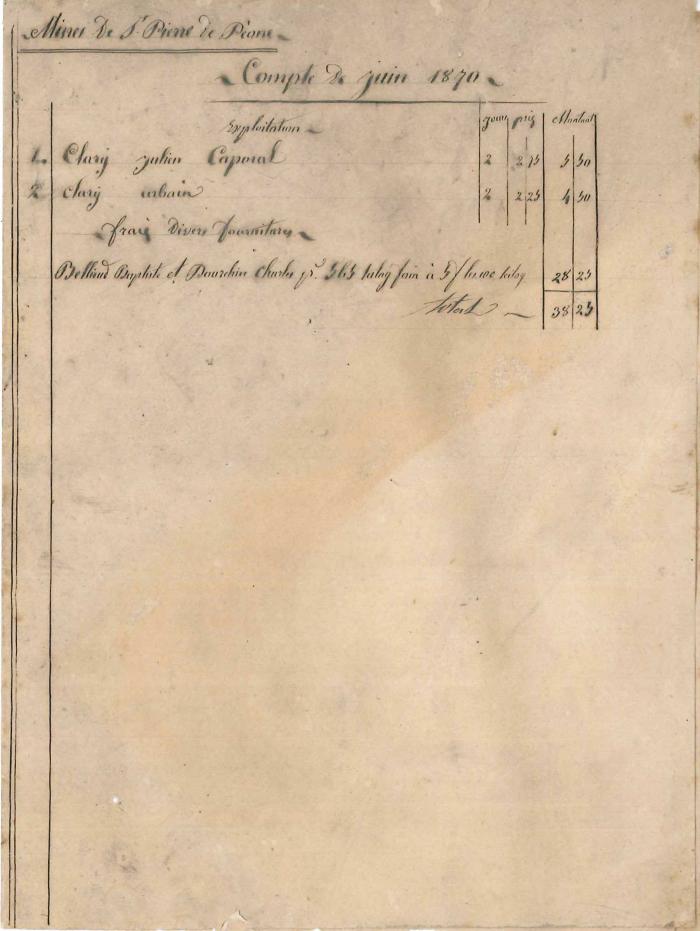 Mines De St Pierre de Péone
Compte De juin 1870
Exploitation jours prix Montant
1. Clary julien Caporal 2 2 75 5 50
2 clary urbain 2 2 25 4 50
frais Divers fournitures
Belliud Baptiste et Dourchin Charles pr. 565 kilog foin à 5 f les 100 kilog 28 25
Total 38 25